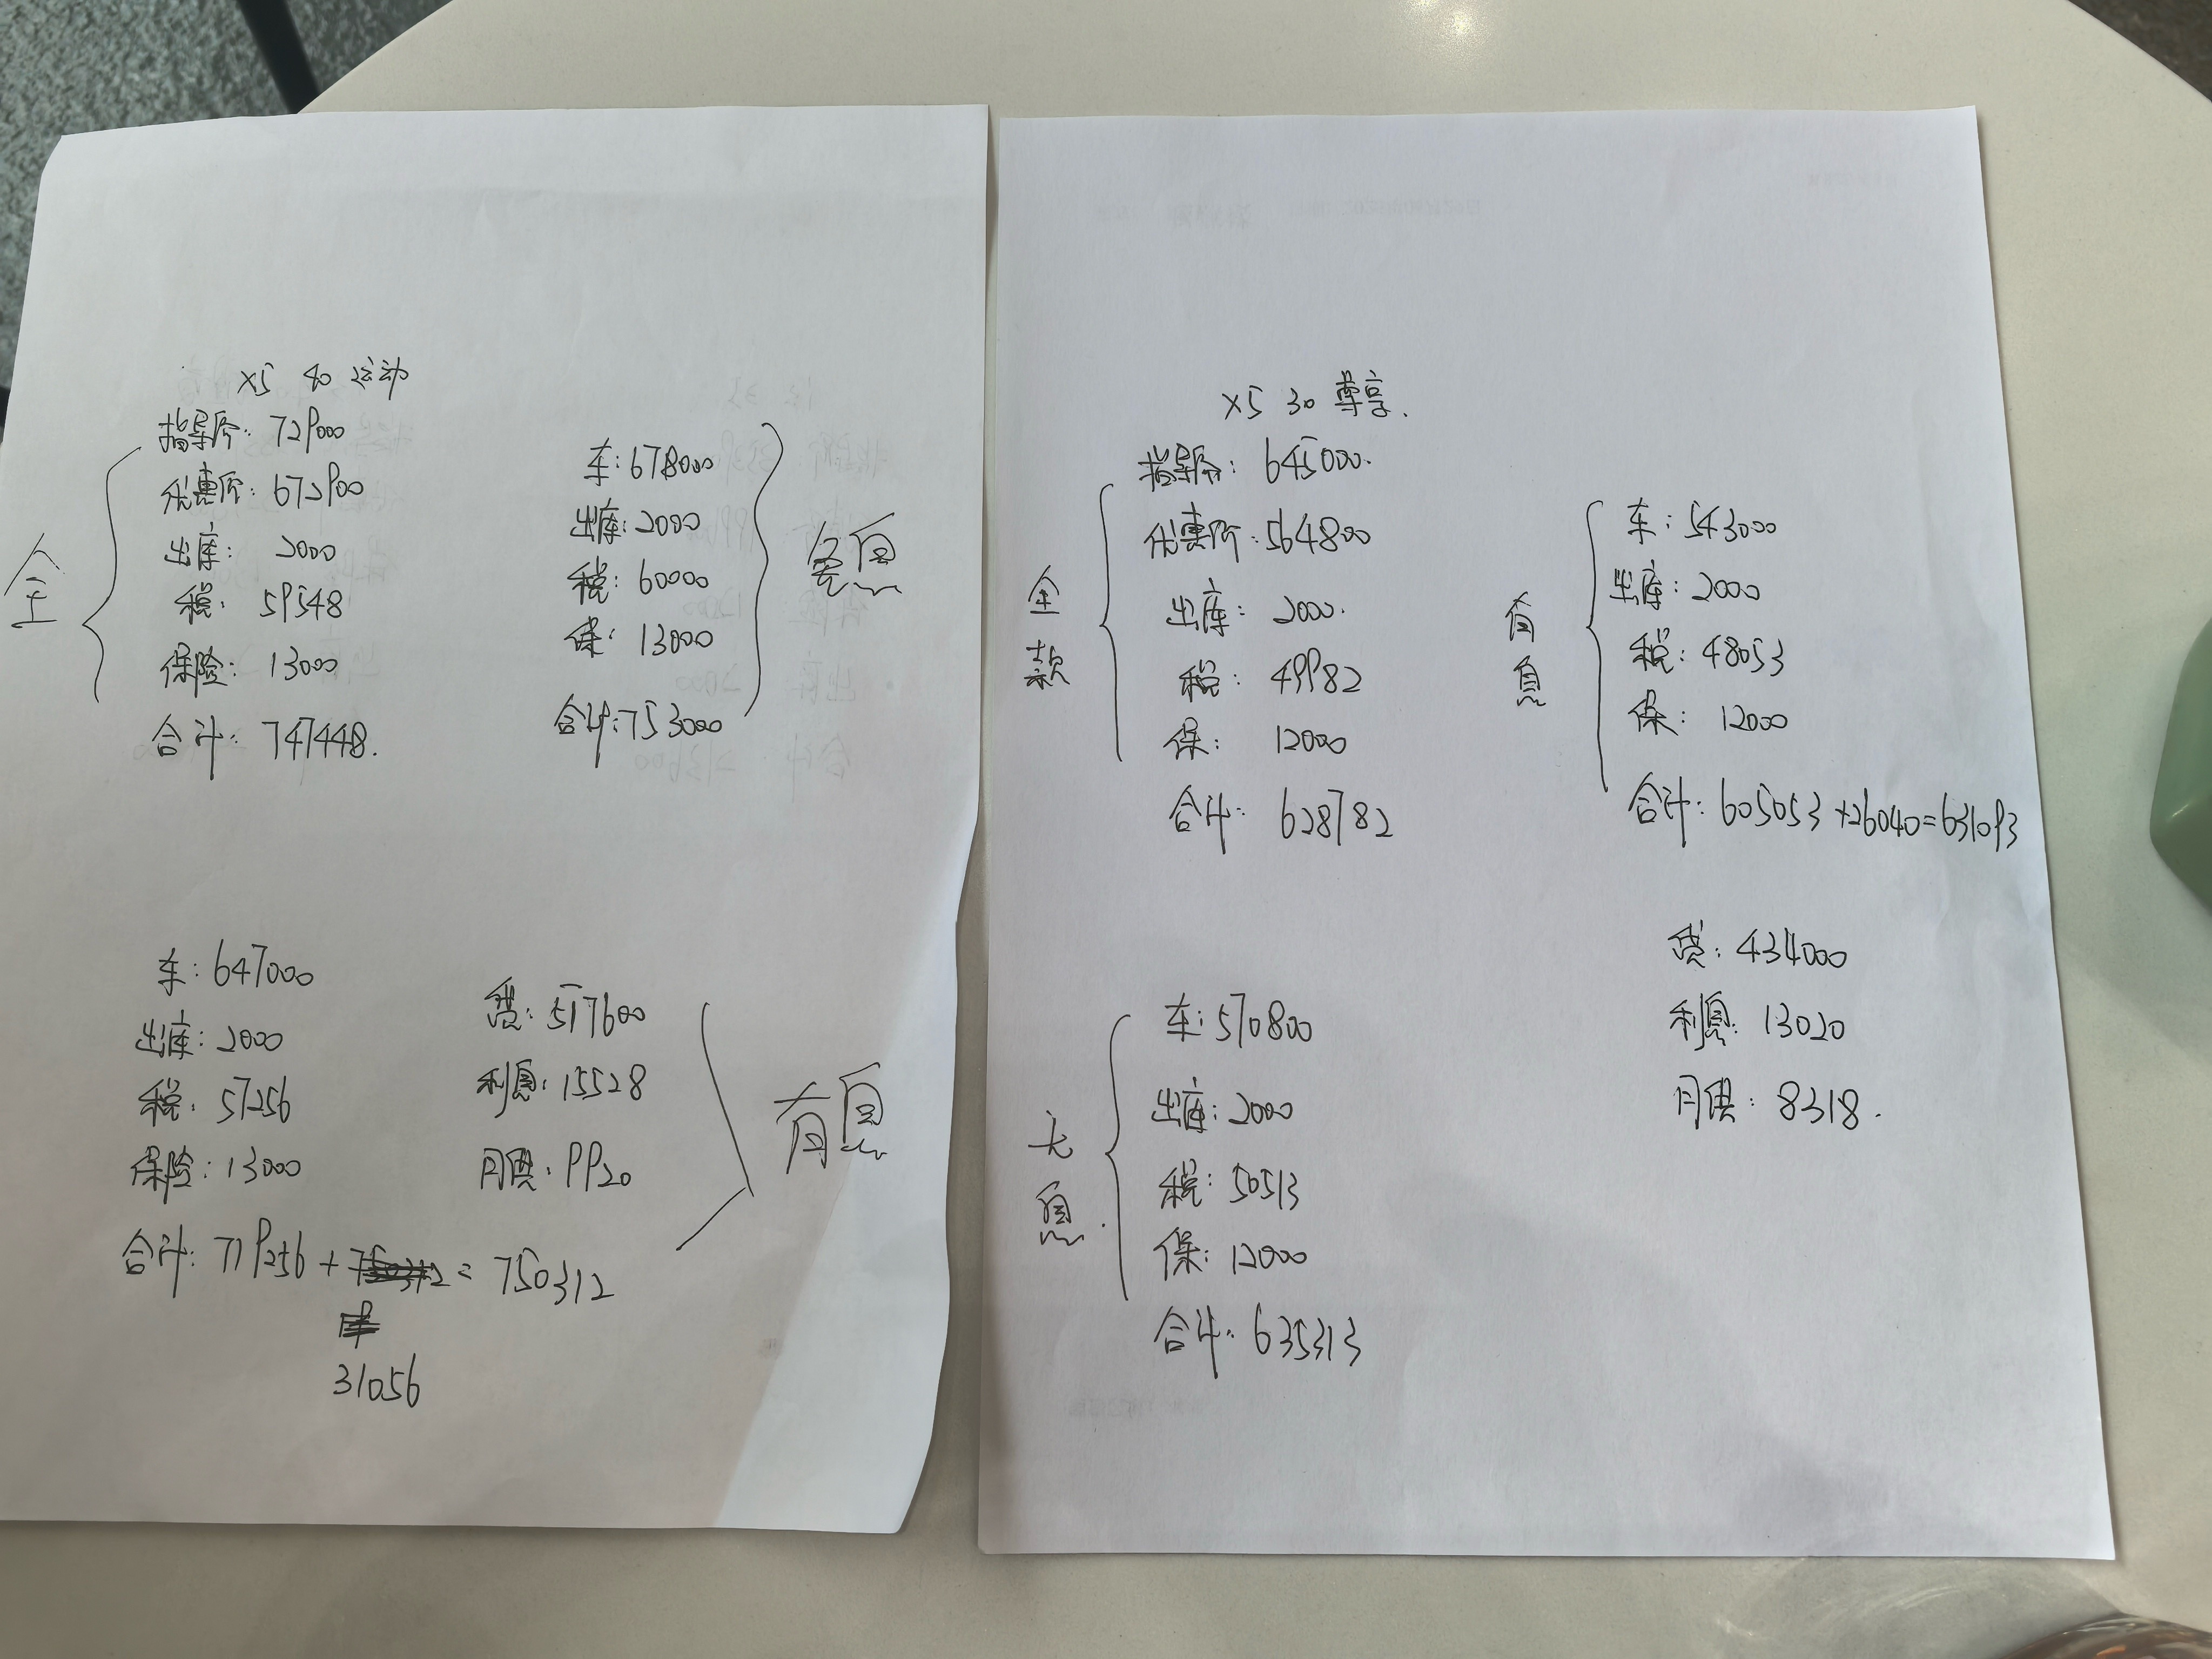 X5 40 运动
指导价: 729000
优惠价: 672900
出库: 2000
税: 59548
保险: 13000
合计: 747448.
全
车: 678000
出库: 2000
税: 60000
保: 13000
合计: 753000
免息
车: 647000
出库: 2000
税: 57256
保险: 13000
合计: 719256 + = 750312
31056
贷: 517600
利息: 15528
月供: 9920
有息
X5 30 尊享.
指导价: 645000.
优惠价: 564800
出库: 2000.
税: 49982
保: 12000
合计: 628782
全款
有息
车: 543000
出库: 2000
税: 48053
保: 12000
合计: 605053 +26040=631093
贷: 434000
利息: 13020
月供: 8318.
无息.
车: 570800
出库: 2000
税: 50513
保: 12000
合计: 635313